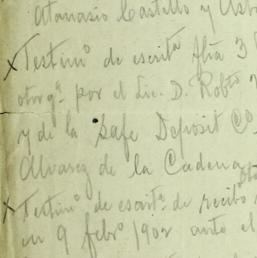 Atanasio Castillo y
x Testimº de escritª
otorgª por el Lic. D. Robtº
y de la Safe Deposit Cº
Alvarez de la Cadena
x Testimº de escritª de recibo
en 9 febrº 1902 ante el